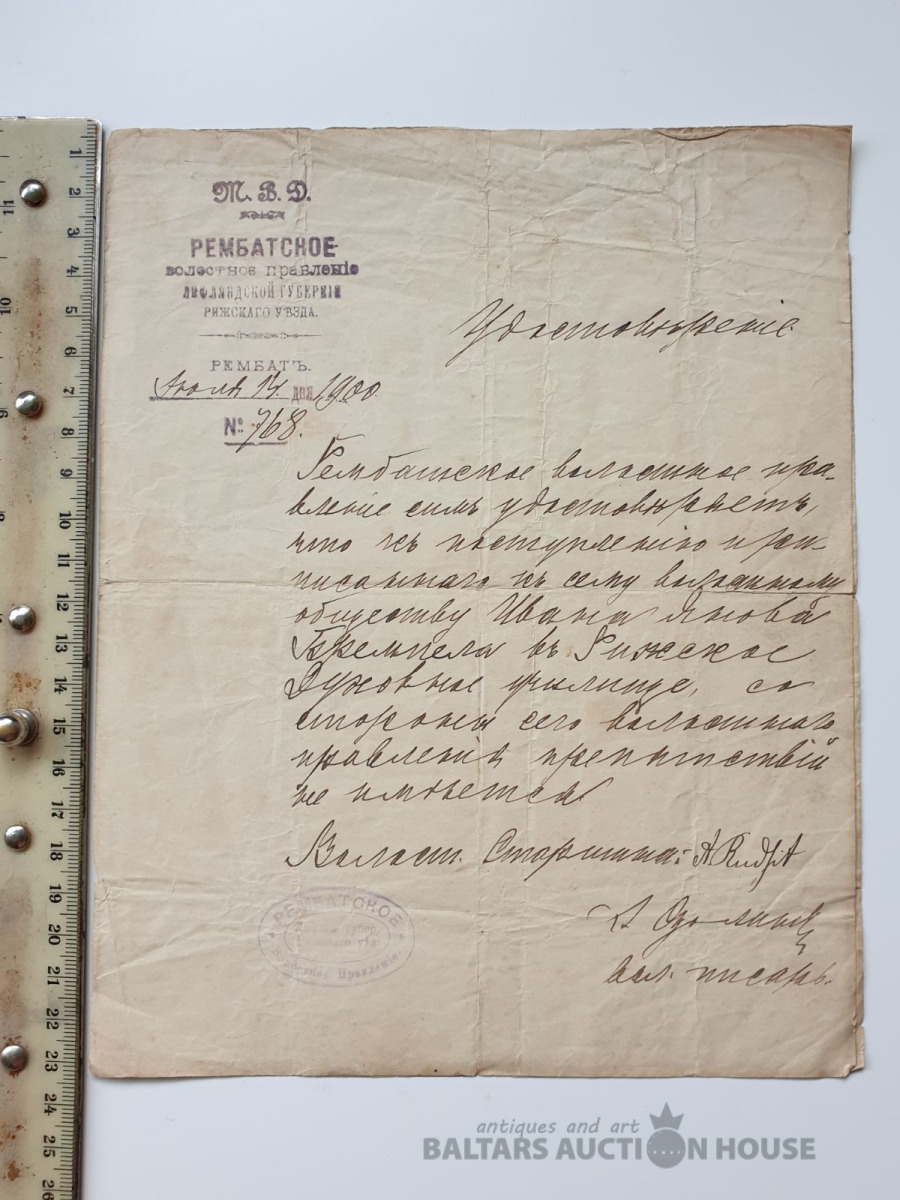 М. В. Д.
РЕМБАТСКОЕ
волостное правленіе
ЛИФЛЯНДСКОЙ ГУБЕРНІИ
РИЖСКАГО УѢЗДА.
РЕМБАТЪ.
Іюля 14 дня 1900
№ 768.
Удостовѣреніе
Рембатское волостное пра-
вленіе симъ удостовѣряетъ,
что къ поступленію при-
писаннаго къ сему волостному
обществу Ивана Янова
въ Рижское
Духовное училище, со
стороны сего волостнаго
правленія препятствій
не имѣется
Волост. Старшина: A Rudsit
Озолинъ
вол. писарь.
РЕМБАТСКОЕ
Волостное Правленіе.
1
2
3
4
5
6
7
8
9
10
11
12
13
14
15
16
17
18
19
20
21
22
23
24
25
26
antiques and art
BALTARS AUCTION HOUSE